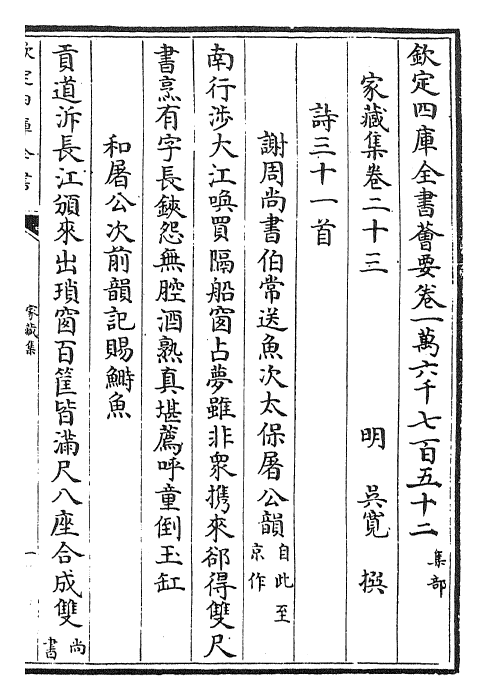 欽定四庫全書薈要卷一萬六千七百五十二 集部
家藏集卷二十三 明 吳寛 撰
詩三十一首
謝周尚書伯常送魚次太保屠公韻 自此至京作
南行涉大江喚買隔船窗占夢雖非衆携來郤得雙尺
書烹有字長鋏怨無腔酒熟真堪薦呼童倒玉缸
和屠公次前韻記賜鰣魚
貢道泝長江頒來出瑣窗百筐皆滿尺八座合成雙 尚書
欽定四庫全書
家藏集
一